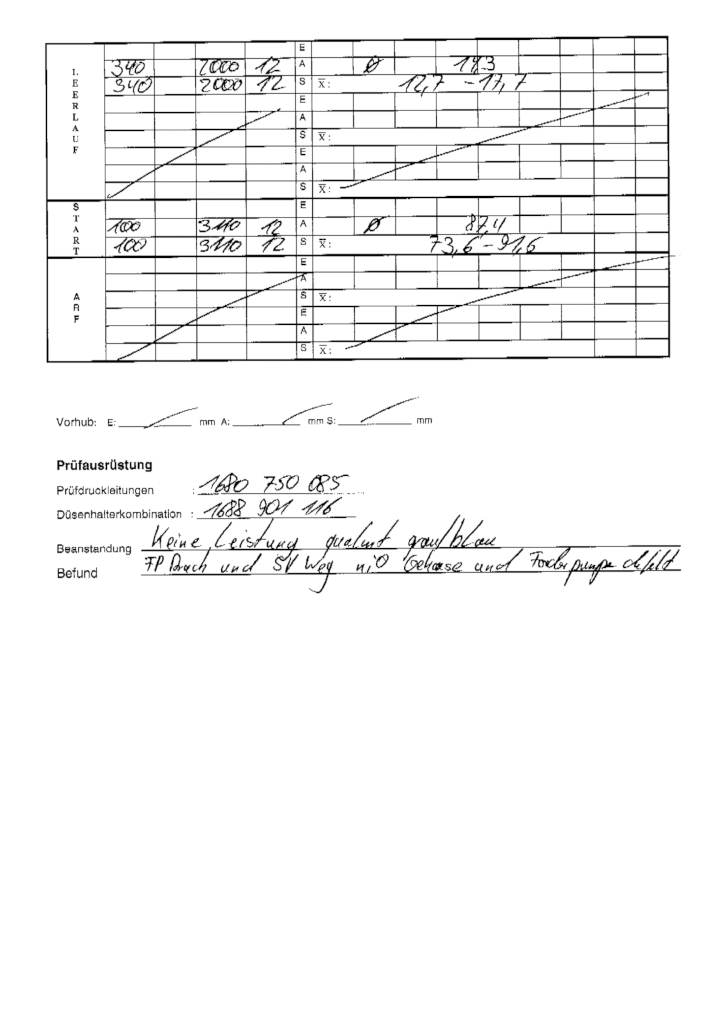 LEERLAUF
E
340 2000 12 A Ø 14,3
340 2000 12 S X̅: 12,7 - 17,7
E
A
S X̅:
E
A
S X̅:
START
E
100 3110 12 A Ø 87,4
100 3110 12 S X̅: 73,6 - 91,6
ARF
E
A
S X̅:
E
A
S X̅:
Vorhub: E: mm A: mm S: mm
Prüfausrüstung
Prüfdruckleitungen : 1680 750 085
Düsenhalterkombination : 1688 901 116
Beanstandung Keine Leistung qualmt grau/blau
Befund FP Druch und SV Weg niO Gehäse und Förderpumpe defekt